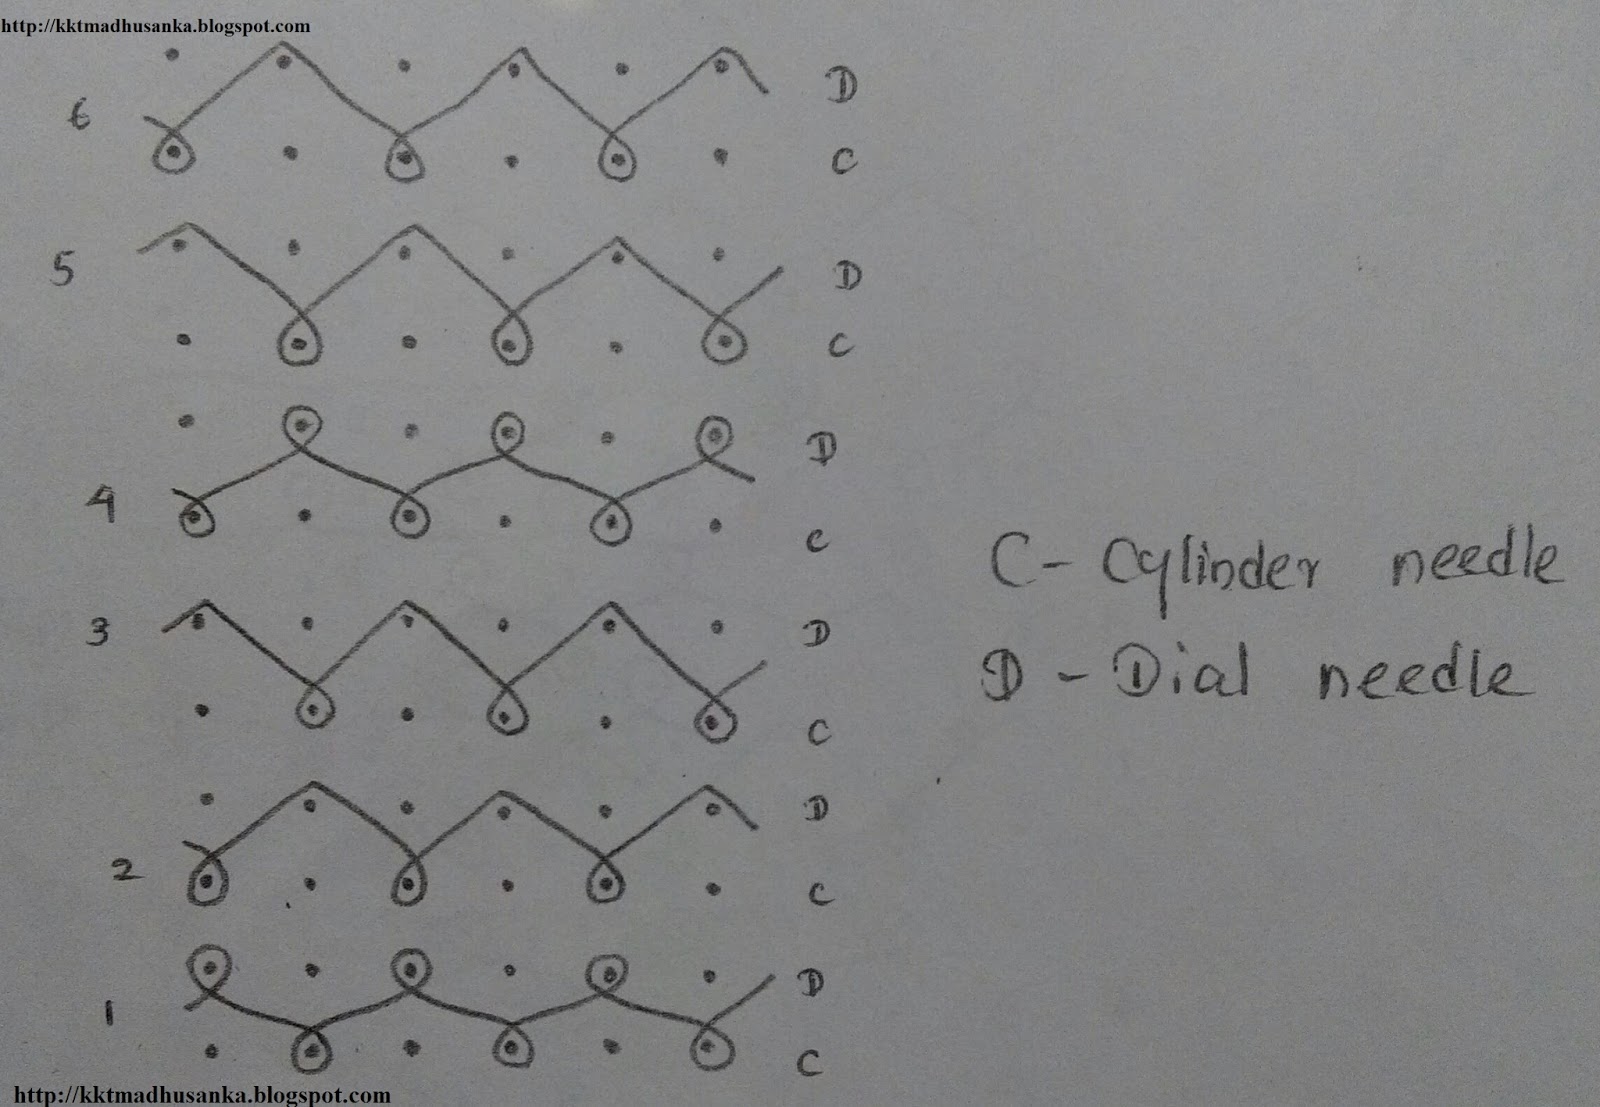 http://kktmadhusanka.blogspot.com
D
6
C
5
D
C
D
4
C
C - Cylinder needle
3
D
D - Dial needle
C
D
2
C
D
1
C
http://kktmadhusanka.blogspot.com